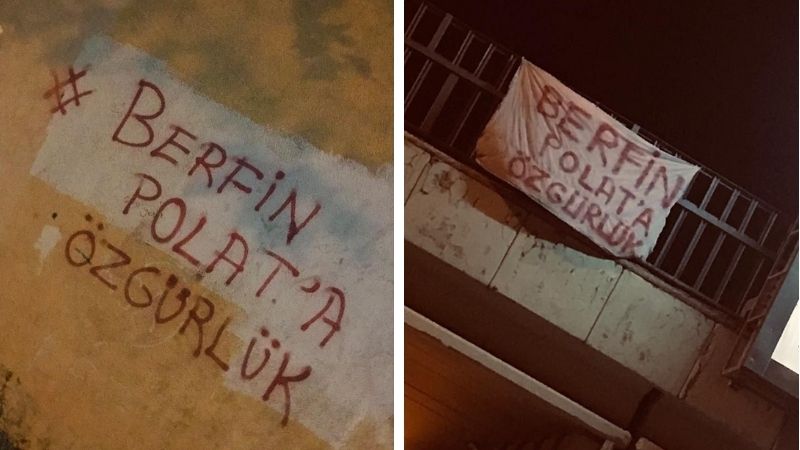 # BERFİN
POLAT'A
ÖZGÜRLÜK
BERFİN
POLAT'A
ÖZGÜRLÜK